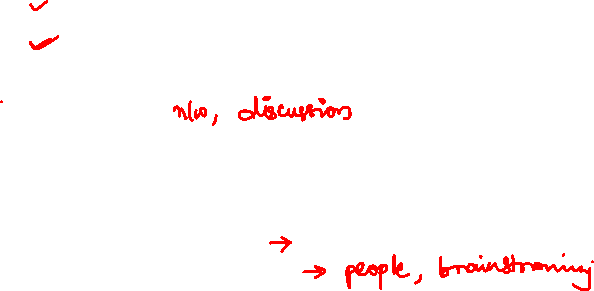 n/w, discussions
→
→ people, brainstroming